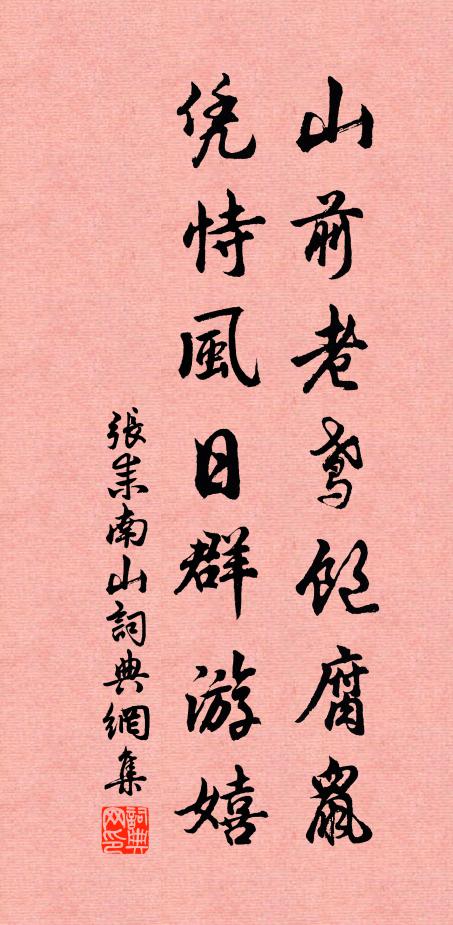 山前老鸢饱腐鼠
凭恃風日群游嬉
張耒南山詞典網集
詞典网印